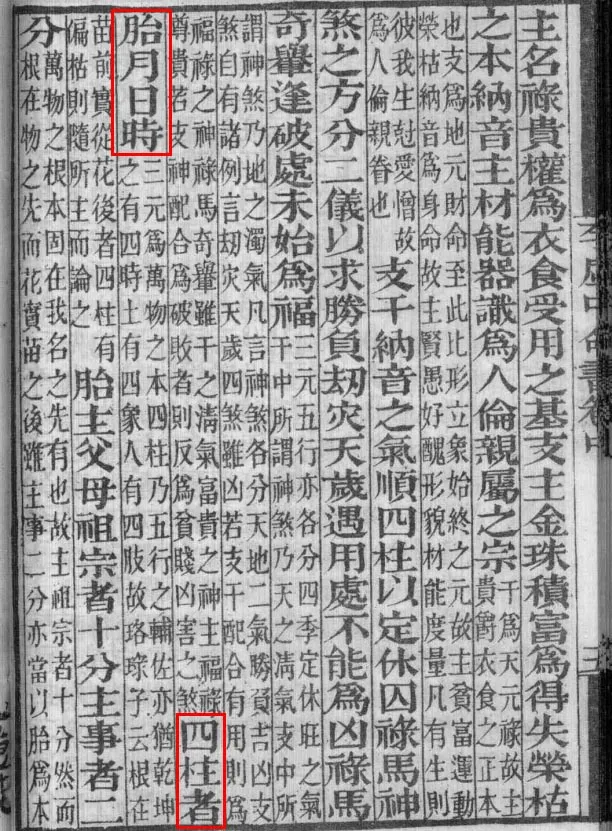 李虛中命書卷中
主名祿貴權爲衣食受用之基支主金珠積富爲得失榮枯
之本納音主材能器識爲人倫親屬之宗
干爲天元祿故主
貴爵衣食之正本
也支爲地元財命至此比形立象始終之元故主貧富運動
榮枯納音爲身命故主賢愚好醜形貌材能度量凡有生則
彼我生尅愛憎故
爲人倫親眷也
支干納音之氣順四柱以定休囚祿馬神
煞之方分二儀以求勝負劫灾天歲遇用處不能爲凶祿馬
奇轝逢破處未始爲福
三元五行亦各分四季定休旺之氣
干中所謂神煞乃天之清氣支中所
謂神煞乃地之濁氣凡言神煞各分天地二氣勝負吉凶支
煞自有諸例言劫灾天歲四煞雖凶若支干配合有用則爲
福祿之神祿馬奇轝雖干之清氣富貴之神主福祿
尊貴若支神配合爲破敗者則反爲貧賤凶害之煞
四柱者
胎月日時
三元爲萬物之本四柱乃五行之輔佐亦猶乾坤
之有四時土有四象人有四肢故珞琭子云根在
苗前實從花後者四柱有
偏枯則隨所主而論之
胎主父母祖宗者十分主事者二
分
萬物之根本固在我名之先有也故主祖宗者十分然而
根在物之先而花實苗之後雖主事二分亦當以胎爲本